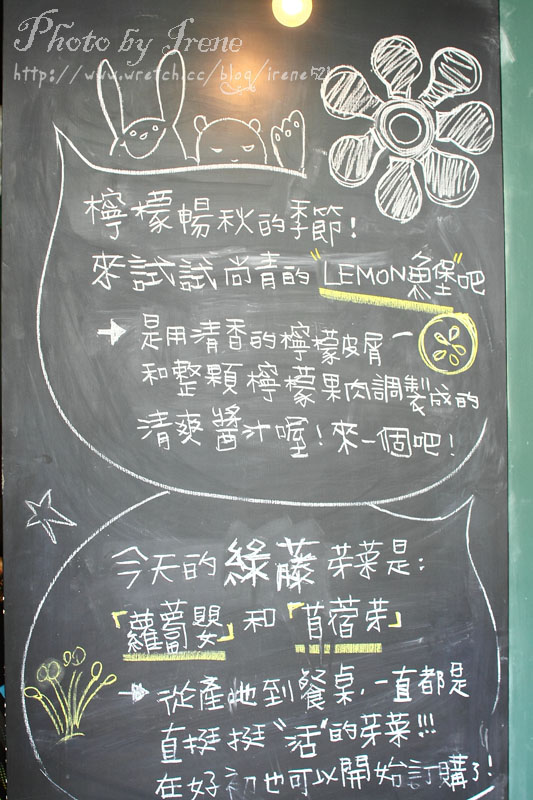 Photo by Irene
http://www.wretch.cc/blog/irene521
檸檬暢秋的季節!
來試試尚青的"LEMON魚堡"吧
是用清香的檸檬皮屑
和整顆檸檬果肉調製成的
清爽醬汁喔!來一個吧!
今天的綠藤芽菜是:
「蘿蔔嬰」和「苜蓿芽」
從產地到餐桌,一直都是
直挺挺"活"的芽菜!!!
在好初也可以開始訂購了!